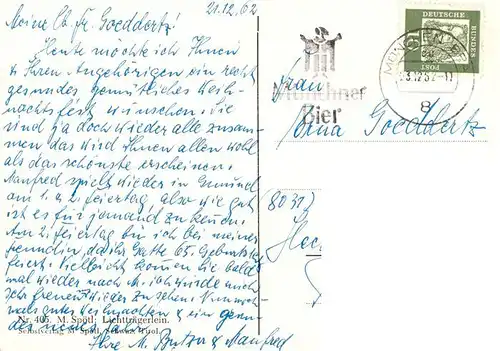 21.12.62
Meine lb. Fr. Goeddertz!
Heute möchte ich Ihnen
u Ihren Angehörigen ein recht
gesundes gemütliches Weih-
nachtsfest wünschen. Sie
sind ja doch wieder alle zusam-
men das wird Ihnen allen wohl
als das schönste erscheinen.
Manfred spielt wieder in Gmund
am 1. u 2. feiertag, also wie gut
ist es für jemand zu
Am 2. feiertag bin ich bei meiner
freundin, da ihr Gatte 65. Geburtstag
feiert. Vielleicht kommen Sie bald
mal wieder nach M. ich würde mich
sehr freuen wieder zu sehen. Nun noch-
mals gutes Weihnachten u ein gesun-
des neues Jahr.
Ihre M. u Manfred
Nr. 405. M. Spötl: Lichtträgerlein.
Selbstverlag M Spötl, Schwaz Tirol.
Münchner
Bier
MÜNCHEN
8
DEUTSCHE
BUNDES
POST
Frau
Erna Goeddertz